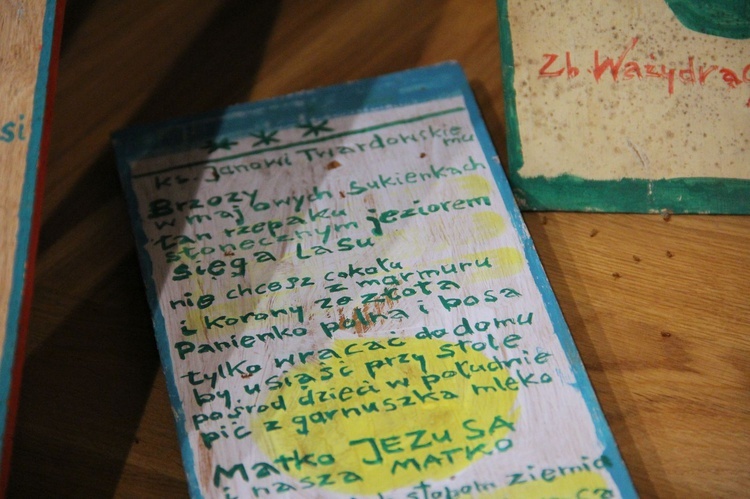 si
Zb. Ważydrąg
* * *
ks. Janowi Twardowskiemu
Brzozy
w majowych sukienkach
łan rzepaku
słonecznym jeziorem
sięga lasu
nie chcesz cokołu
z marmuru
i korony ze złota
Panienko polna i bosa
tylko wracać do domu
by usiąść przy stole
pośród dzieci w południe
pić z garnuszka mleko
Matko JEZUSA
i nasza MATKO
stopom ziemia